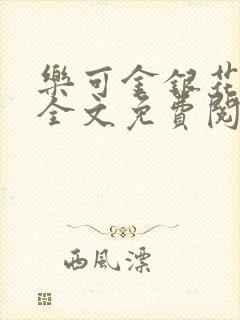 樂可金銀花
全文免費閱
西風漂